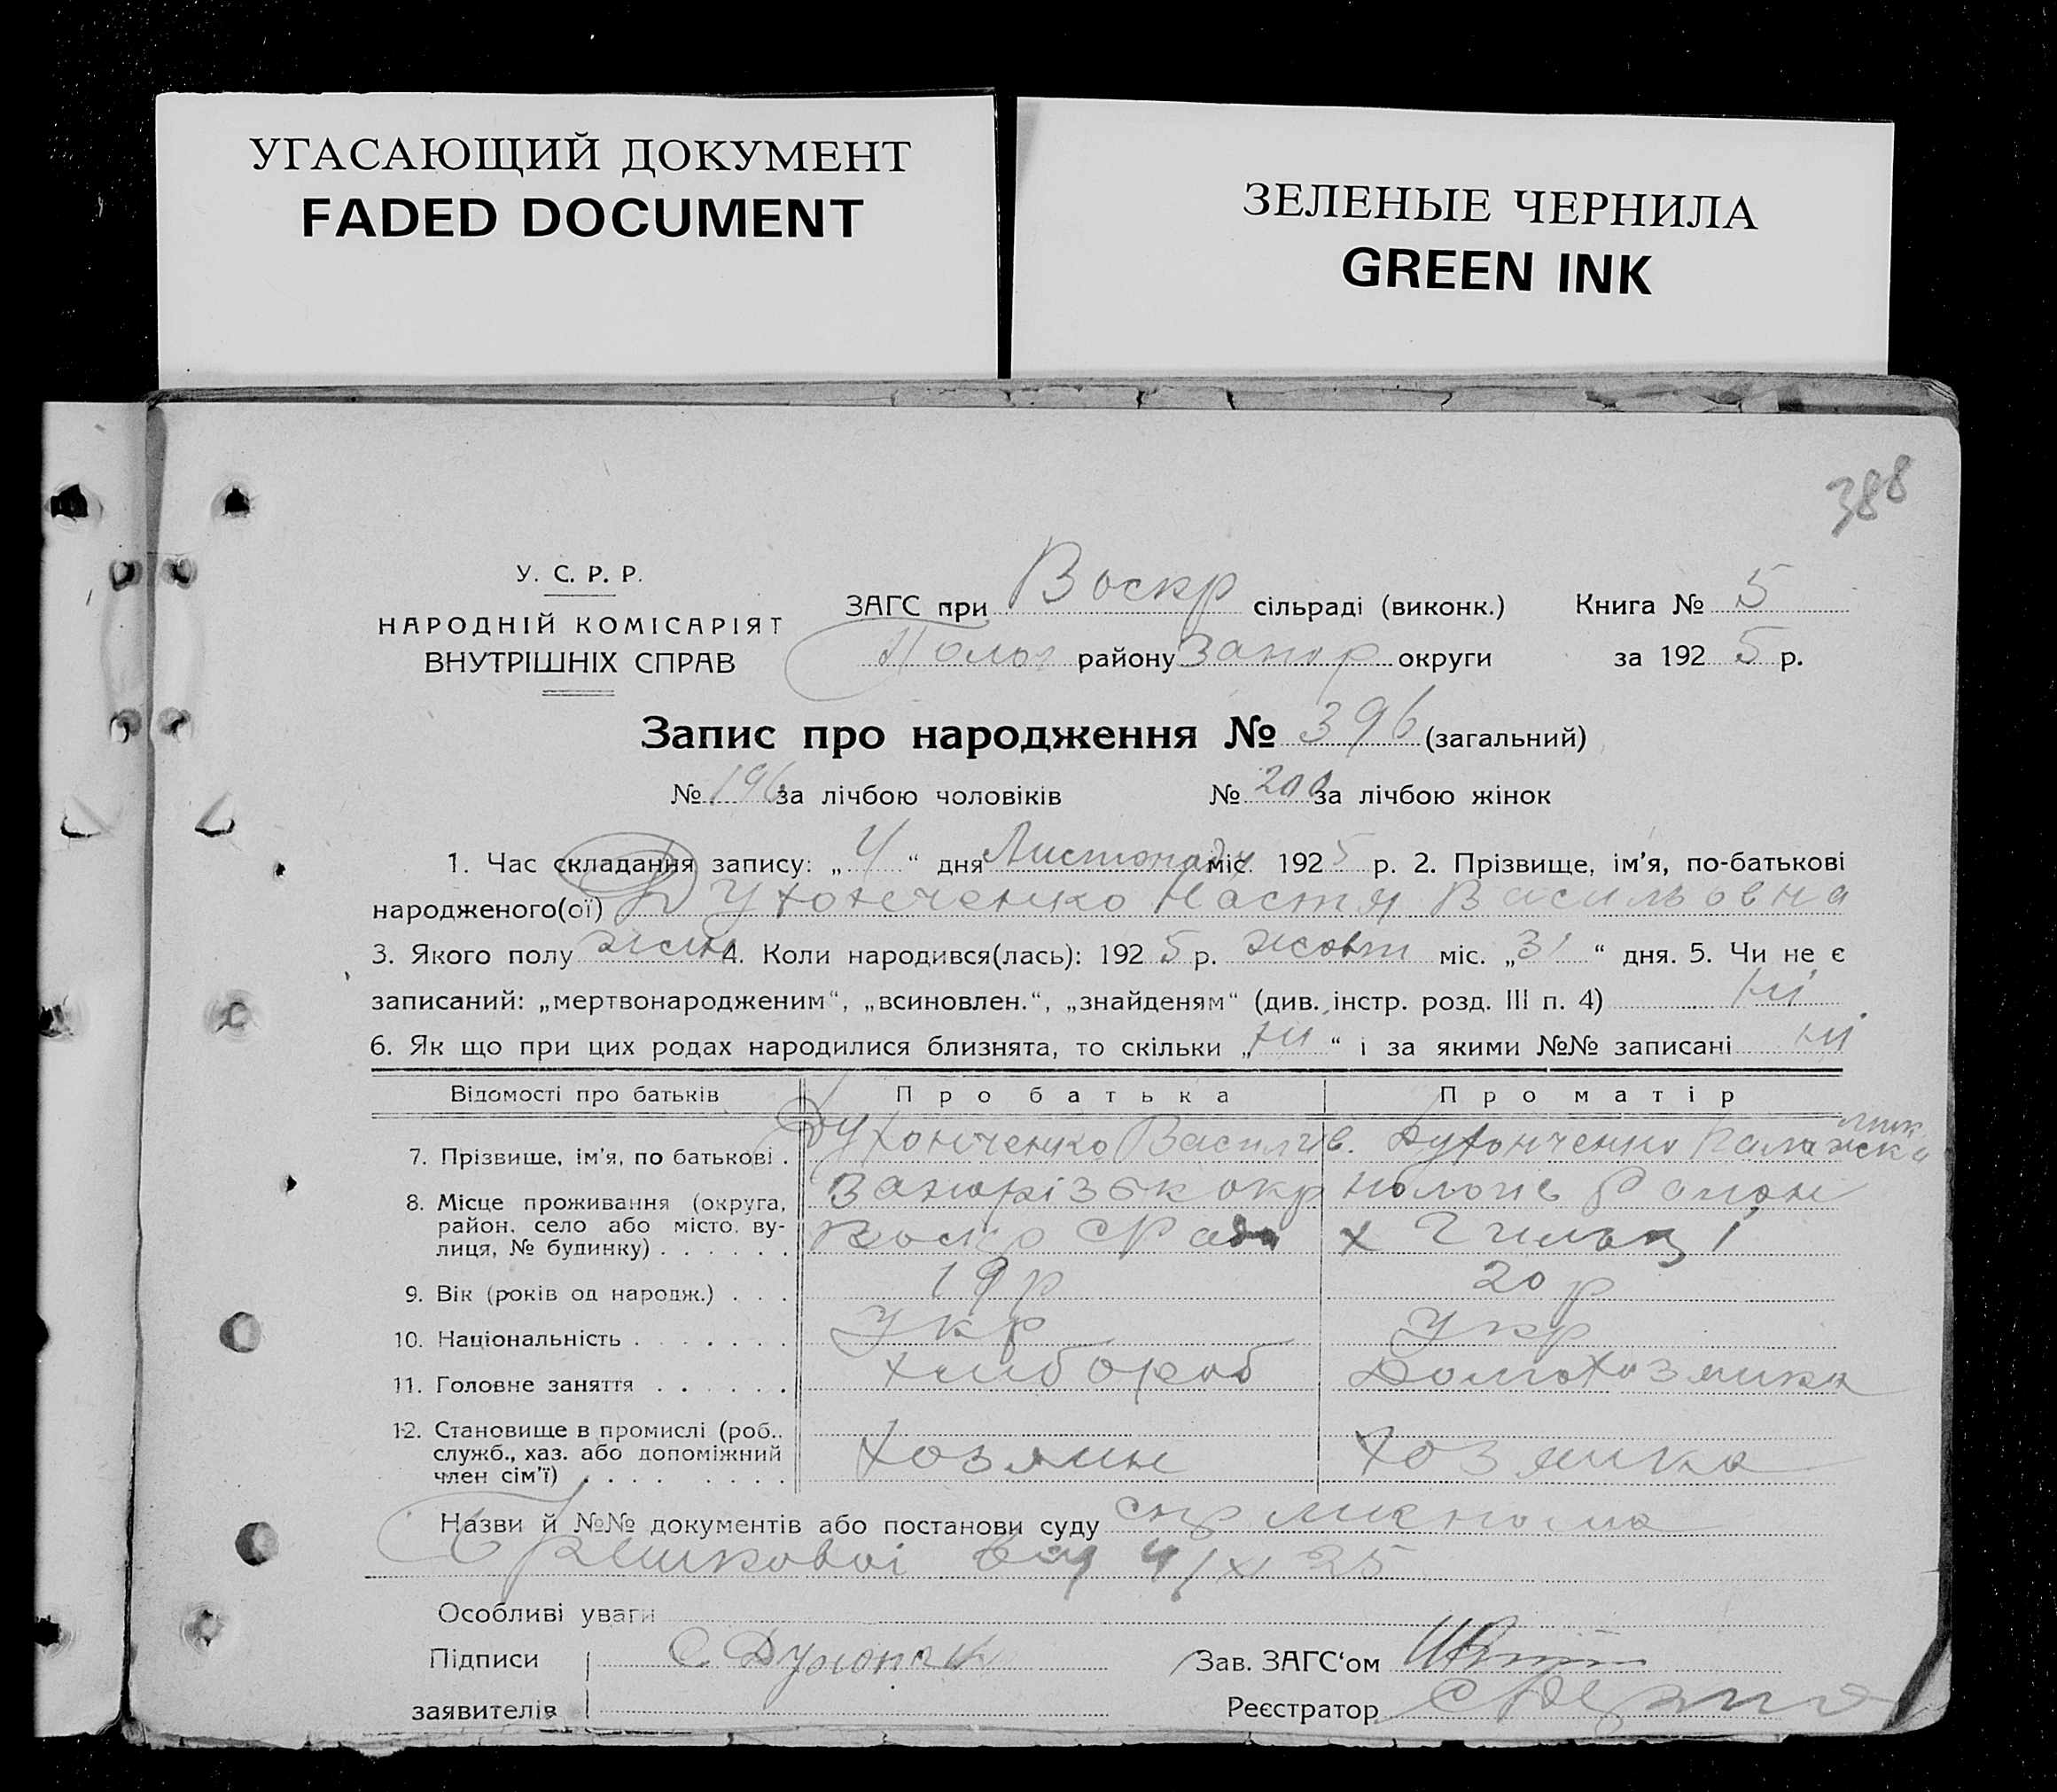 УГАСАЮЩИЙ ДОКУМЕНТ
FADED DOCUMENT
ЗЕЛЕНЫЕ ЧЕРНИЛА
GREEN INK
388
У. С. Р. Р.
НАРОДНІЙ КОМІСАРІЯТ
ВНУТРІШНІХ СПРАВ
ЗАГС при Воскр сільраді (виконк.) Книга № 5
Полог району Запор округи за 1925 р.
Запис про народження № 396 (загальний)
№ 196 за лічбою чоловіків № 200 за лічбою жінок
1. Час складання запису: „4“ дня Листопаду міс. 1925 р. 2. Прізвище, ім'я, по-батькові
народженого(ої) Духонченко Настя Васильовна
3. Якого полу жін 4. Коли народився(лась): 1925 р. жовт міс. „31“ дня. 5. Чи не є
записаний: „мертвонародженим“, „всиновлен.“, „знайденям“ (див. інстр. розд. III п. 4) ні
6. Як що при цих родах народилися близнята, то скільки „ні“ і за якими №№ записані ні
Відомості про батьків Про батька Про матір
7. Прізвище, ім'я, по батькові . Духонченко Василь Духонченко
8. Місце проживання (округа, Запорізьк окр Район
район, село або місто, ву-
лиця, № будинку) . . . . . . Воскр х
9. Вік (років од народж.) . . . 19 р 20 р
10. Національність . . . . . . . Укр Укр
11. Головне заняття . . . . . . хлібороб Домохозяйка
12. Становище в промислі (роб.,
служб., хаз. або допоміжний Хозяин Хозяйка
член сім'ї) . . . . . . . . .
Назви й №№ документів або постанови суду
від 4/XI 25
Особливі уваги
Підписи Зав. ЗАГС'ом
заявителів Реєстратор